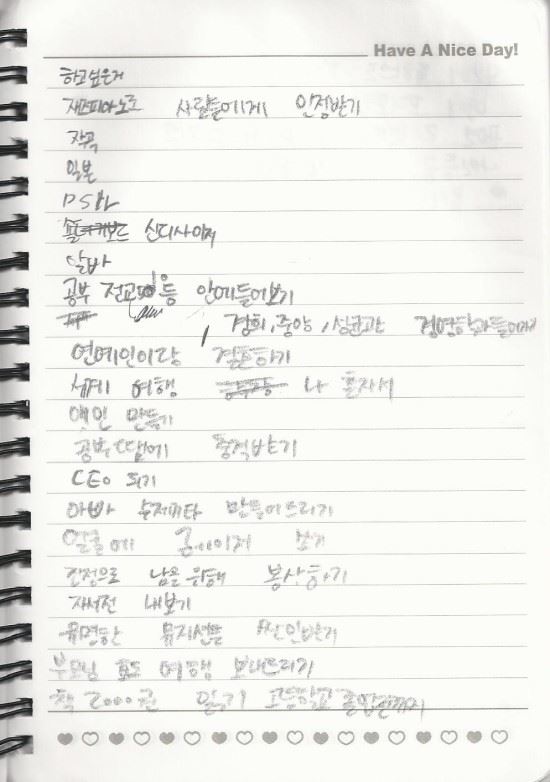 Have A Nice Day!
하고싶은거
재즈피아노로 사람들에게 인정받기
작곡
일본
신디사이저
알바
공부 전교 등 안에들어보기
경희, 중앙, 성균관 경영학과들어가기
연예인이랑 결혼하기
세계 여행 나 혼자서
애인 만들기
공부 땜에 충격받기
CEO 되기
아빠 수제기타 만들어드리기
얼굴에 보기
진정으로 남을 위해 봉사하기
자서전 내보기
유명한 뮤지션들 싸인받기
부모님 효도 여행 보내드리기
책 2000권 읽기 고등학교 졸업전까지